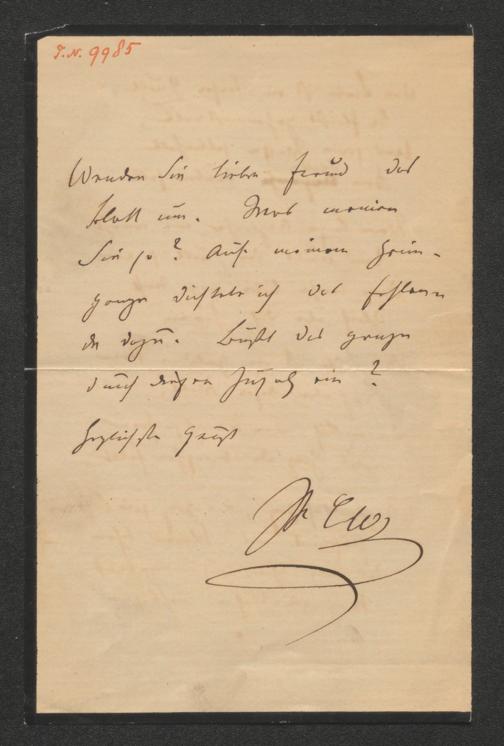 I.N. 9985
Wenden Sie lieber Freund das
Blatt um. Was meinen
Sie so? Auf meinem Heim-
gange dichtete ich das Fehlen-
de dazu. Büßt das ganze
durch diesen Zusatz ein?
Herzlichst grüßt
Ihr